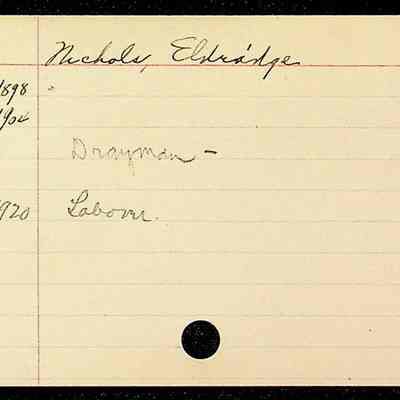 Nichols, Eldradge
1898
Drayman -
1920 Laborer.